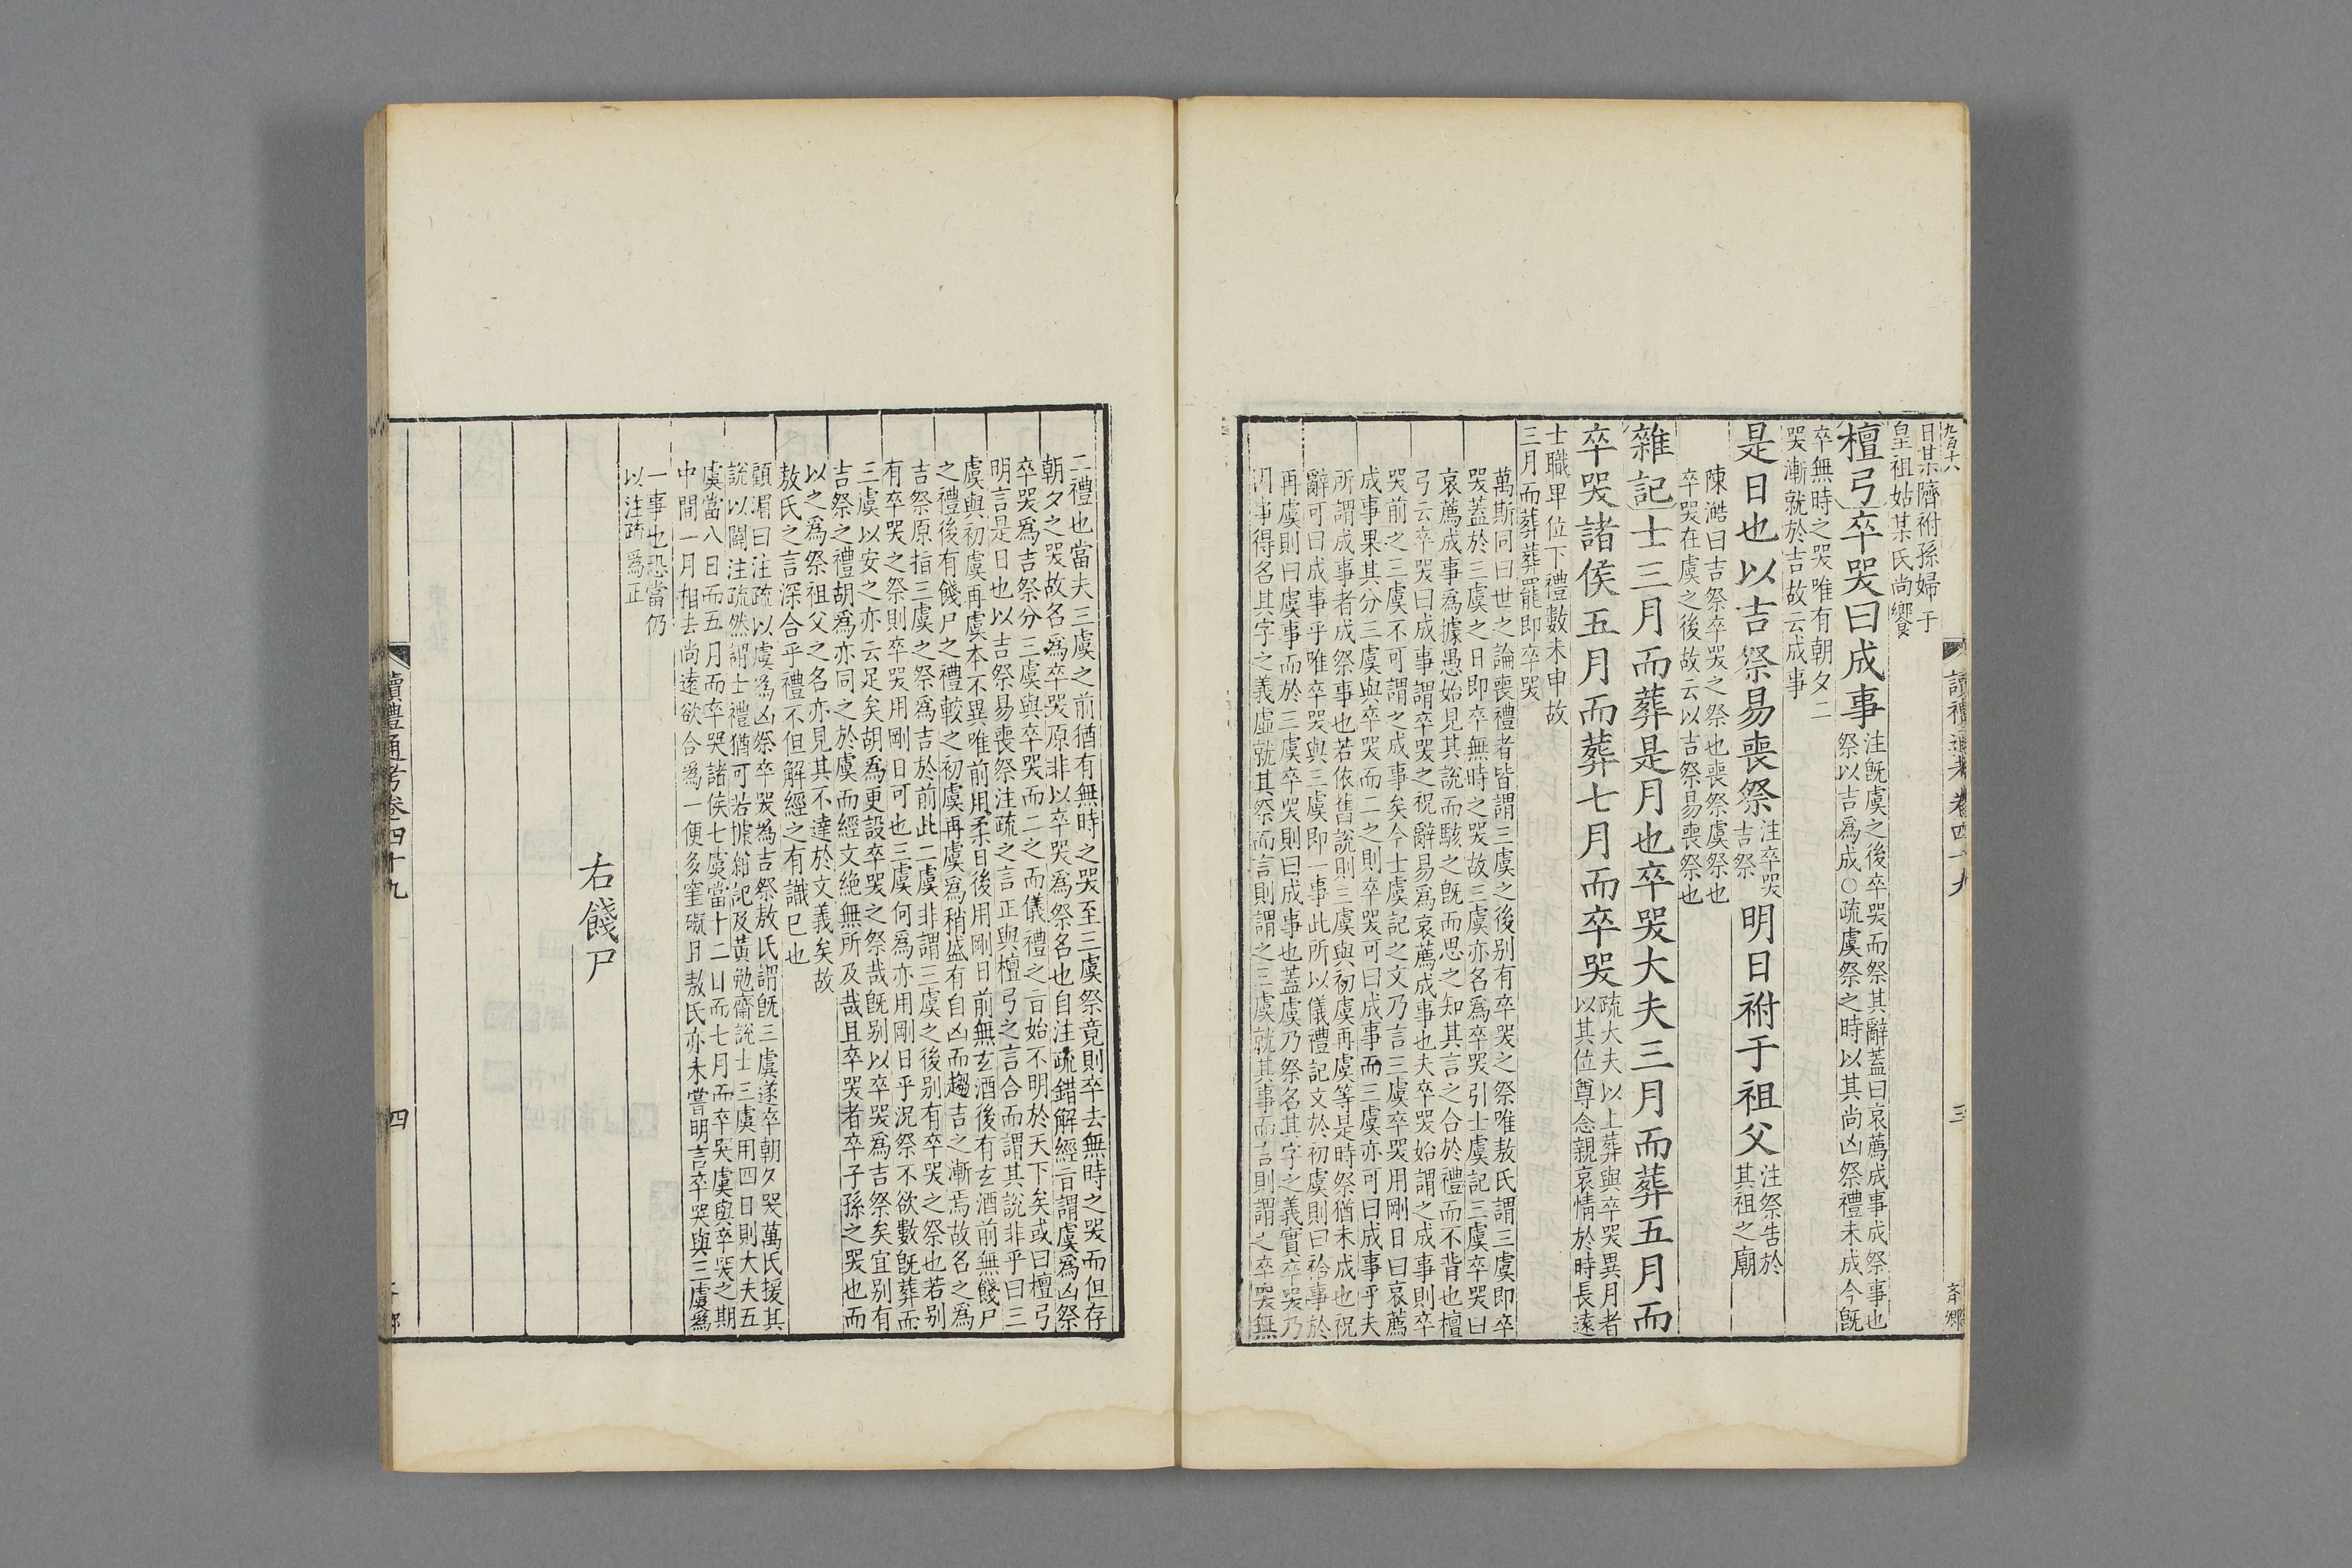 日某隮祔孫婦于
皇祖姑某氏尚饗
檀弓卒哭曰成事
注旣虞之後卒哭而祭其辭蓋曰哀薦成事成祭事也
祭以吉爲成○疏虞祭之時以其尚凶祭禮未成今旣
卒無時之哭唯有朝夕二
哭漸就於吉故云成事
是日也以吉祭易喪祭
注卒哭
吉祭
明日祔于祖父
注祭告於
其祖之廟
陳澔曰吉祭卒哭之祭也喪祭虞祭也
卒哭在虞之後故云以吉祭易喪祭也
雜記士三月而葬是月也卒哭大夫三月而葬五月而
卒哭諸侯五月而葬七月而卒哭
疏大夫以上葬與卒哭異月者
以其位尊念親哀情於時長遠
士職卑位下禮數未申故
三月而葬葬罷即卒哭
萬斯同曰世之論喪禮者皆謂三虞之後别有卒哭之祭唯敖氏謂三虞即卒
哭蓋於三虞之日即卒無時之哭故三虞亦名爲卒哭引士虞記三虞卒哭曰
哀薦成事爲據愚始見其說而駭之旣而思之知其言之合於禮而不背也檀
弓云卒哭曰成事謂卒哭之祝辭易爲哀薦成事也夫卒哭始謂之成事則卒
哭前之三虞不可謂之成事矣今士虞記之文乃言三虞卒哭用剛日曰哀薦
成事果其分三虞與卒哭而二之則卒哭可曰成事而三虞亦可曰成事乎夫
所謂成事者成祭事也若依舊說則三虞與初虞再虞等是時祭猶未成也祝
辭可曰成事乎唯卒哭與三虞即一事此所以儀禮記文於初虞則曰祫事於
再虞則曰虞事而於三虞卒哭則曰成事也蓋虞乃祭名其字之義實卒哭乃
因事得名其字之義虛就其祭而言則謂之三虞就其事而言則謂之卒哭無
讀禮通考卷四十九
三
二禮也當夫三虞之前猶有無時之哭至三虞祭竟則卒去無時之哭而但存
朝夕之哭故名爲卒哭原非以卒哭爲祭名也自注疏錯解經言謂虞爲凶祭
卒哭爲吉祭分三虞與卒哭而二之而儀禮之言始不明於天下矣或曰檀弓
明言是日也以吉祭易喪祭注疏之言正與檀弓之言合而謂其說非乎曰三
虞與初虞再虞本不異唯前用柔日後用剛日前無玄酒後有玄酒前無餞尸
之禮後有餞尸之禮較之初虞再虞爲稍盛有自凶而趨吉之漸焉故名之爲
吉祭原指三虞之祭爲吉於前此二虞非謂三虞之後别有卒哭之祭也若别
有卒哭之祭則卒哭用剛日可也三虞何爲亦用剛日乎況祭不欲數旣葬而
三虞以安之亦云足矣胡爲更設卒哭之祭哉旣别以卒哭爲吉祭矣宜别有
吉祭之禮胡爲亦同之於虞而經文絶無所及哉且卒哭者卒子孫之哭也而
以之爲祭祖父之名亦見其不達於文義矣故
敖氏之言深合乎禮不但解經之有識巳也
顧湄曰注疏以虞爲凶祭卒哭爲吉祭敖氏謂旣三虞遂卒朝夕哭萬氏援其
說以闢注疏然謂士禮猶可若據雜記及黃勉齋說士三虞用四日則大夫五
虞當八日而五月而卒哭諸侯七虞當十二日而七月而卒哭虞與卒哭之期
中間一月相去尚遠欲合爲一便多窒礙且敖氏亦未嘗明言卒哭與三虞爲
一事也恐當仍
以注疏爲正
右餞尸
讀禮通考卷四十九
四